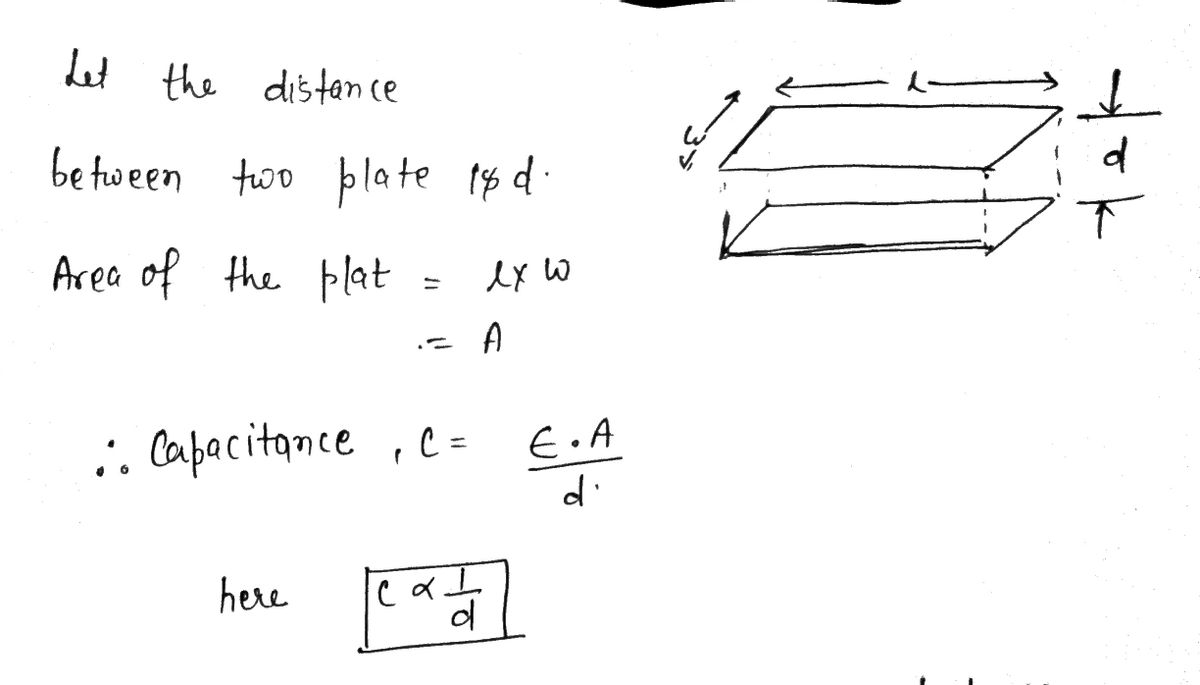 Let the distance
between two plate is d.
Area of the plat = l x w
.= A
∴ Capacitance , C = ϵ.A / d.
here C ∝ 1/d
l
w
d